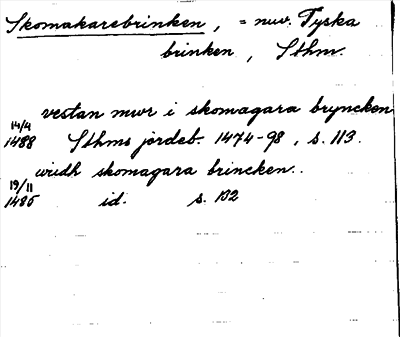 Skomakarebrinken, = nuv. Tyska
brinken, Sthm.
vestan mwr i skomagara bryncken
14/4
1488 Sthms jordeb. 1474-98, s. 113.
widh skomagara brincken..
19/11
1485 id. s. 132